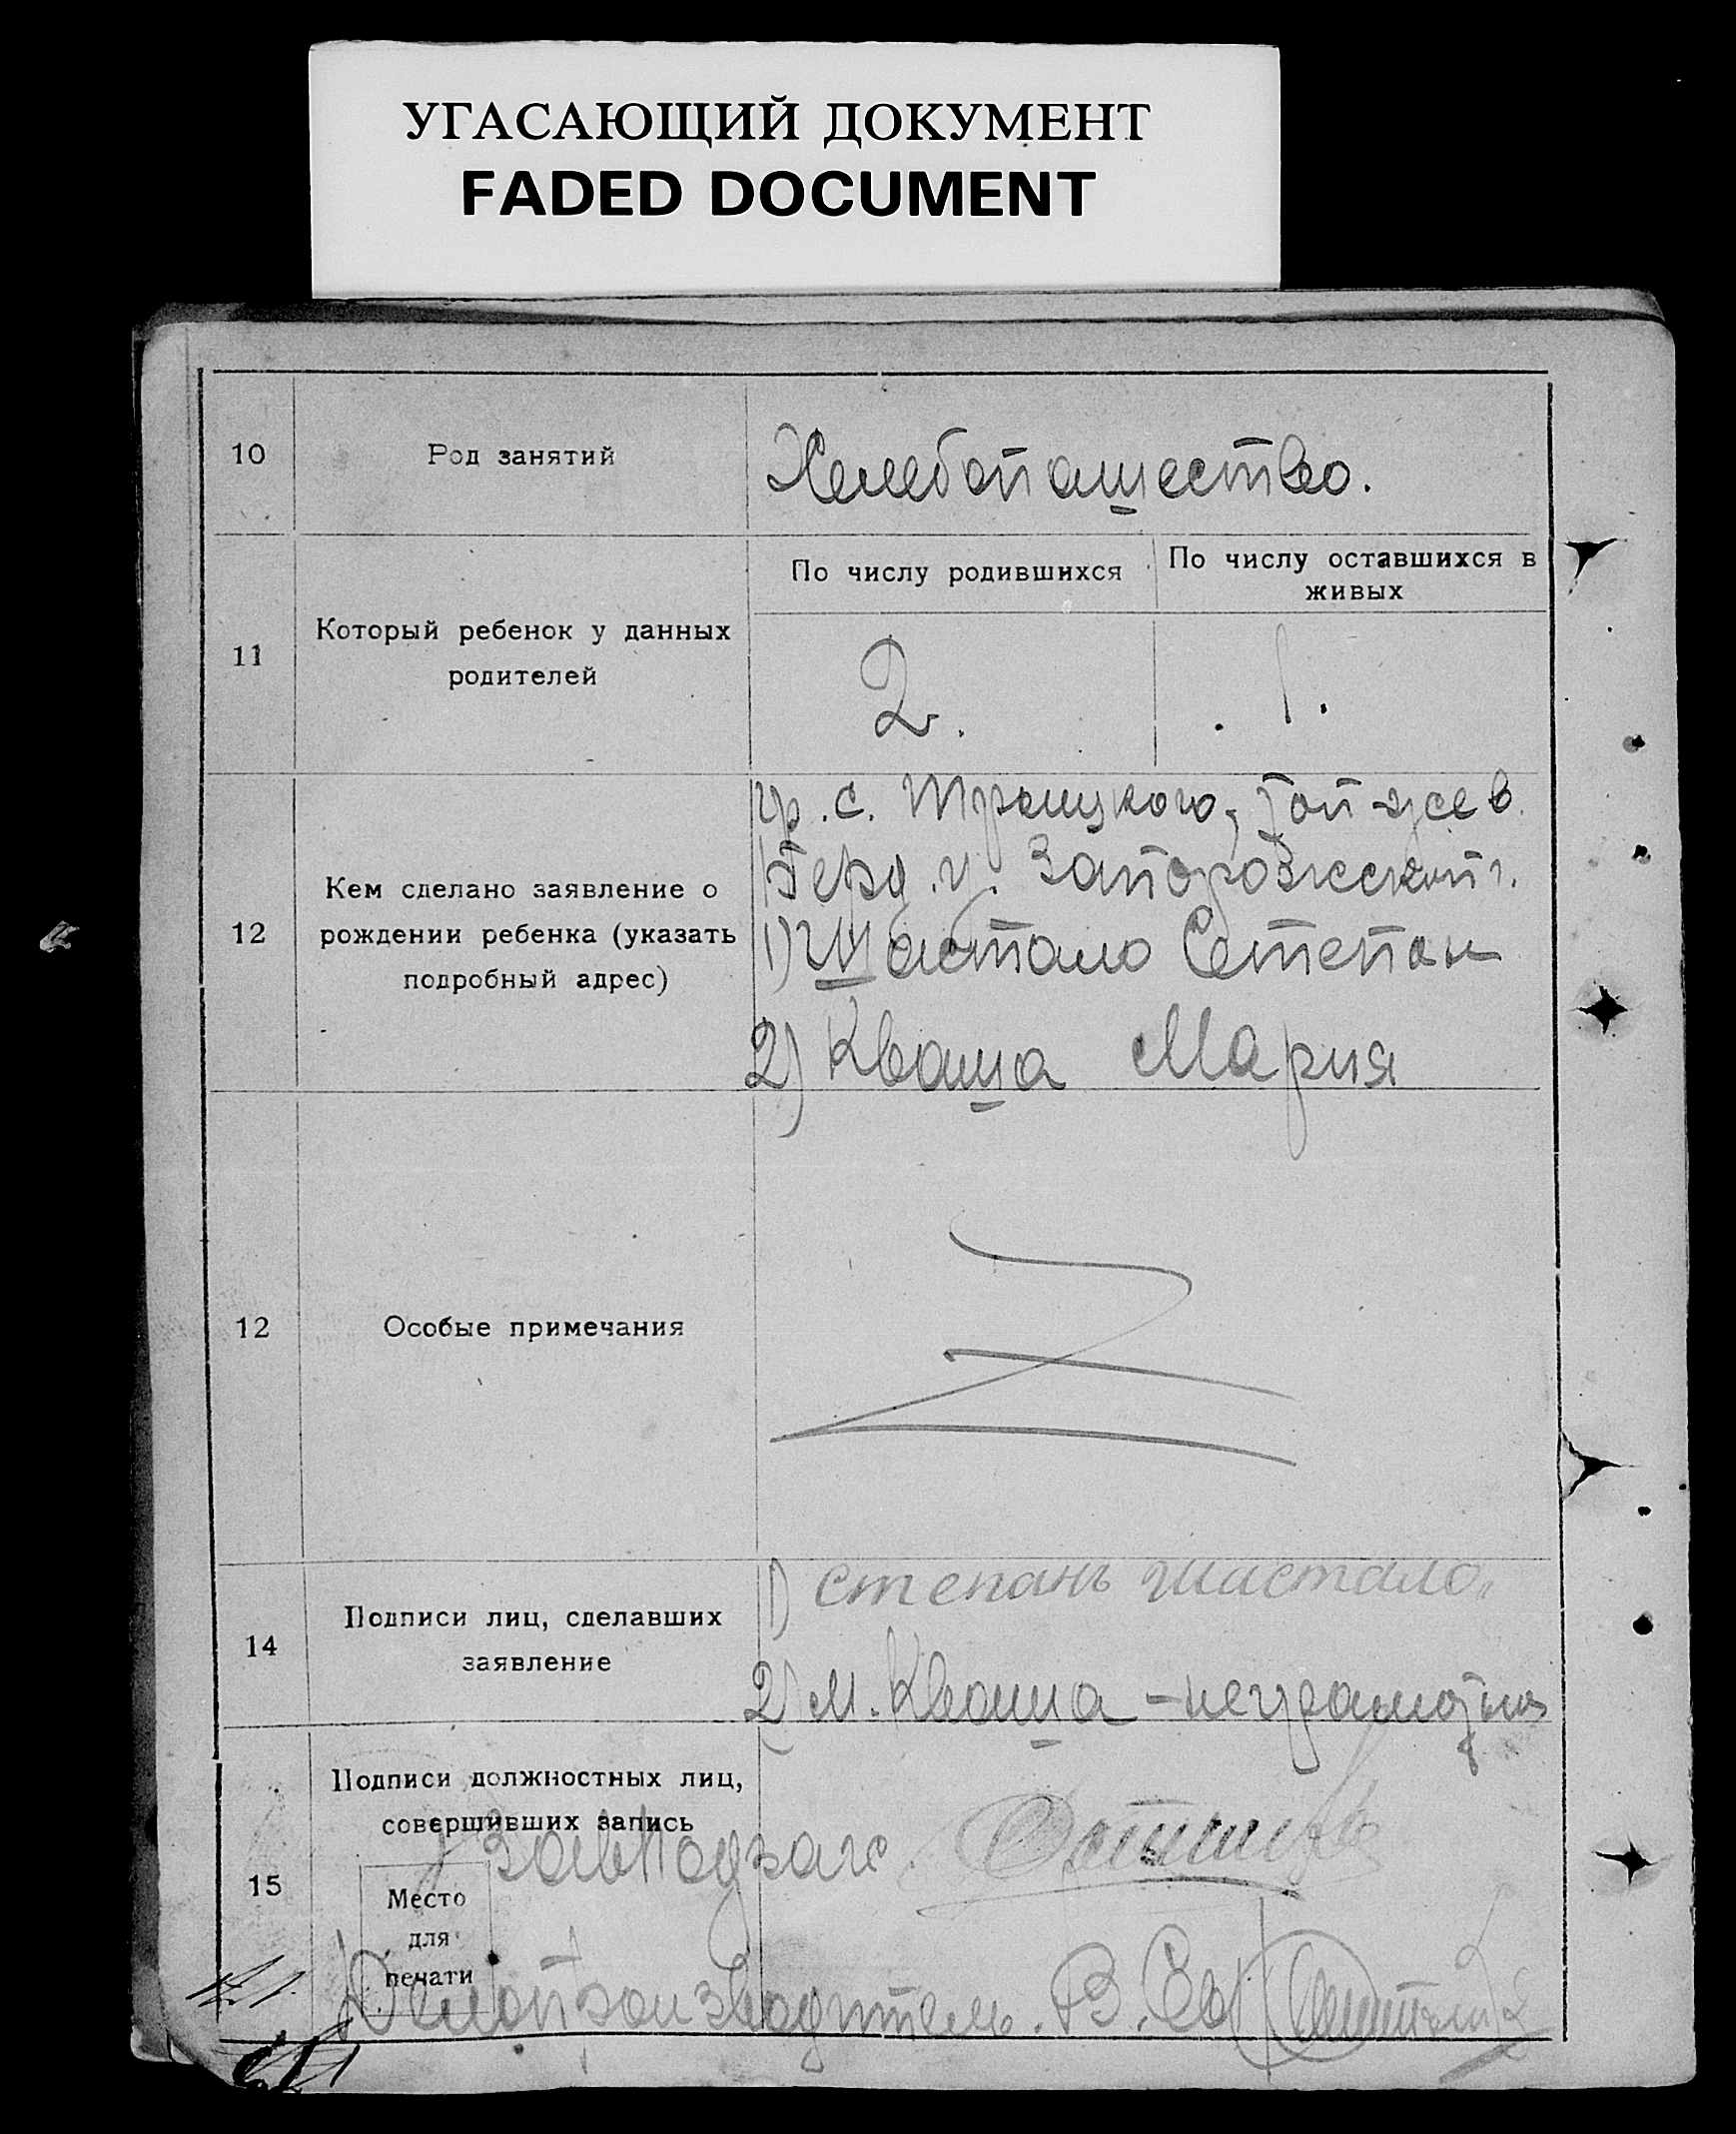 УГАСАЮЩИЙ ДОКУМЕНТ
FADED DOCUMENT
10
Род занятий
Хлебопашество.
11
Который ребенок у данных
родителей
По числу родившихся
По числу оставшихся в
живых
2.
1.
12
Кем сделано заявление о
рождении ребенка (указать
подробный адрес)
гр. с. Троицкого,
Берд. у. Запорожской г.
1) Шастало Степан
2) Кваша Мария
12
Особые примечания
14
Подписи лиц, сделавших
заявление
1) степанъ шастало
2) М. Кваша - неграмотная
15
Подписи должностных лиц,
совершивших запись
ЗавПодзагс.
Место
для
печати
Делопроизводитель. В.